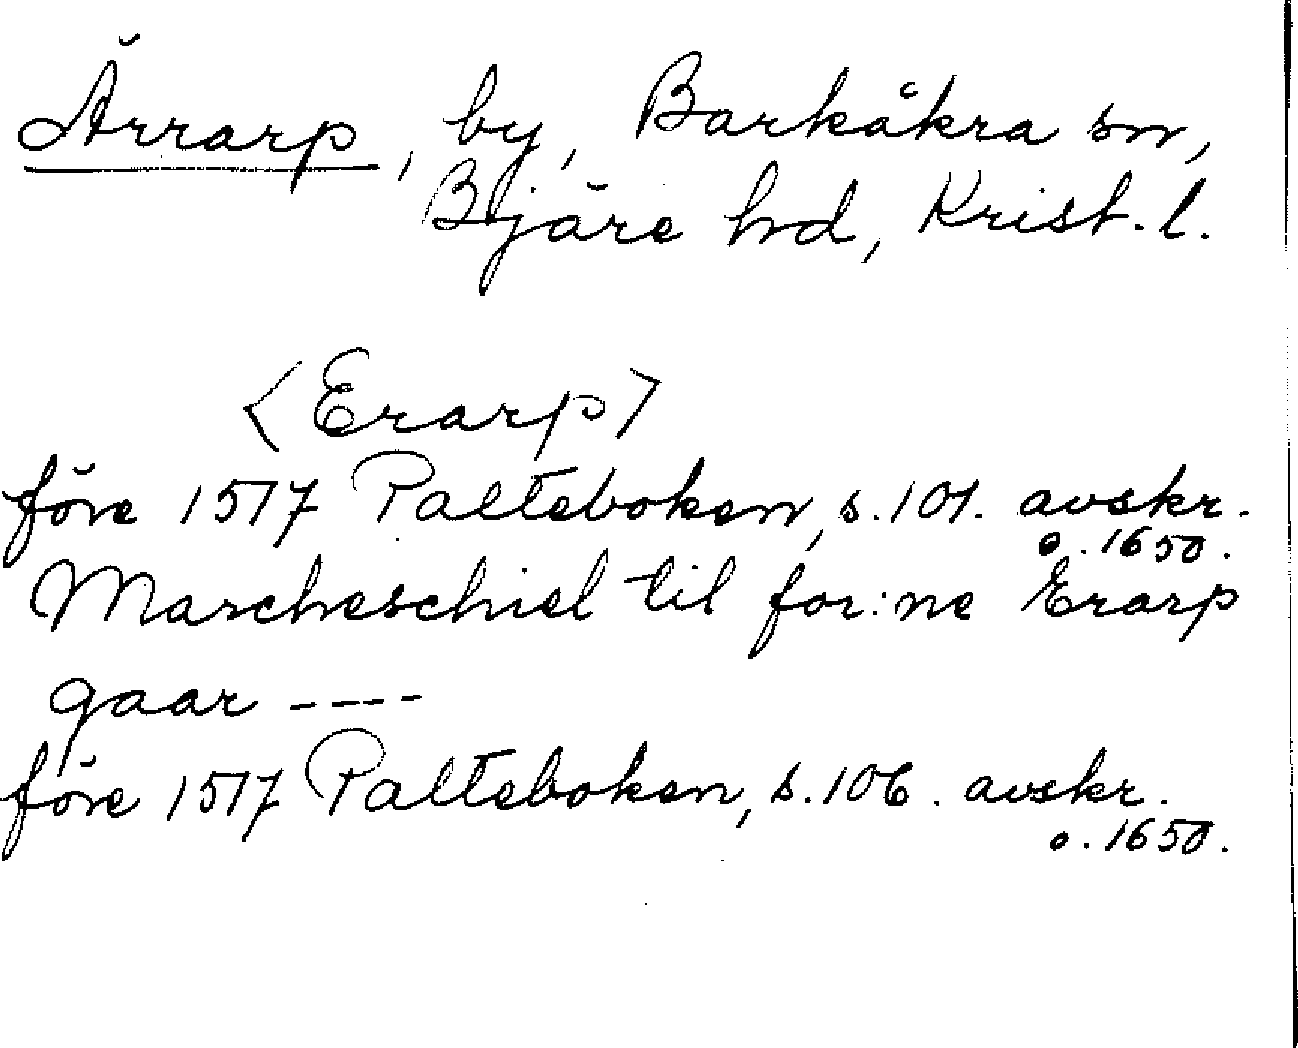 Ärrarp, by, Barkåkra sn,
Bjäre hd, Krist. l.
<Erarp>
före 1517 Palteboken, s. 101. avskr.
o. 1650.
Marcheschiel til for:ne Erarp
gaar ----
före 1517 Palteboken, s. 106. avskr.
o. 1650.